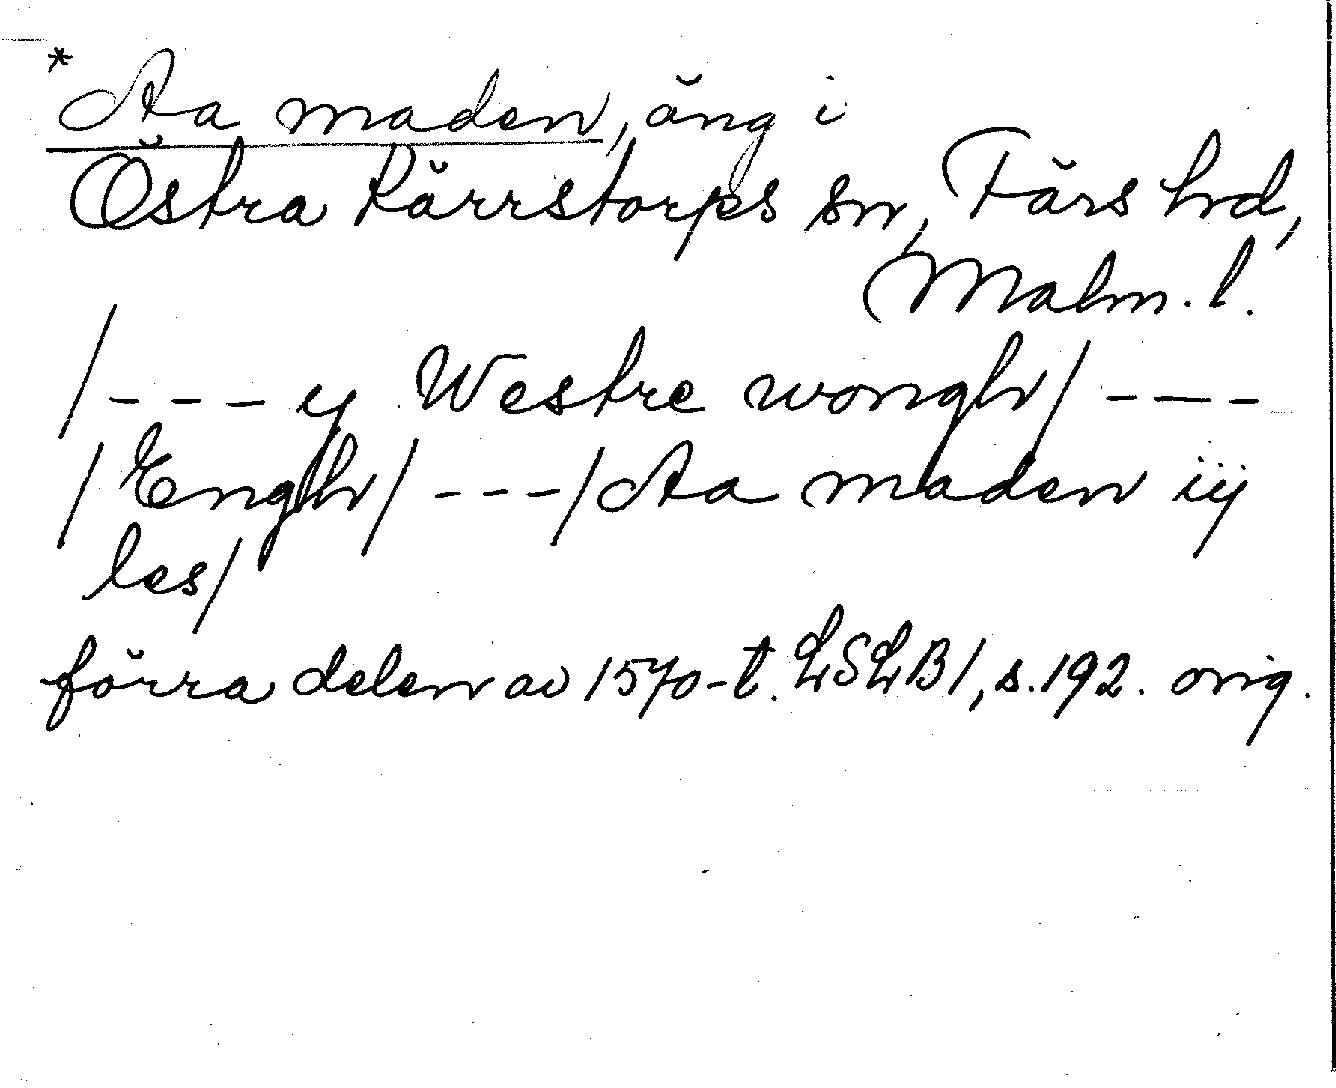 *Aa maden, äng i
Östra Kärrstorps sn, Färs hd,
Malm. l.
/--- y Westre wongh/ ----
/Engh/ ---/Aa maden iij
les/
förra delen av 1570-t. LSLB 1, s. 192. orig.